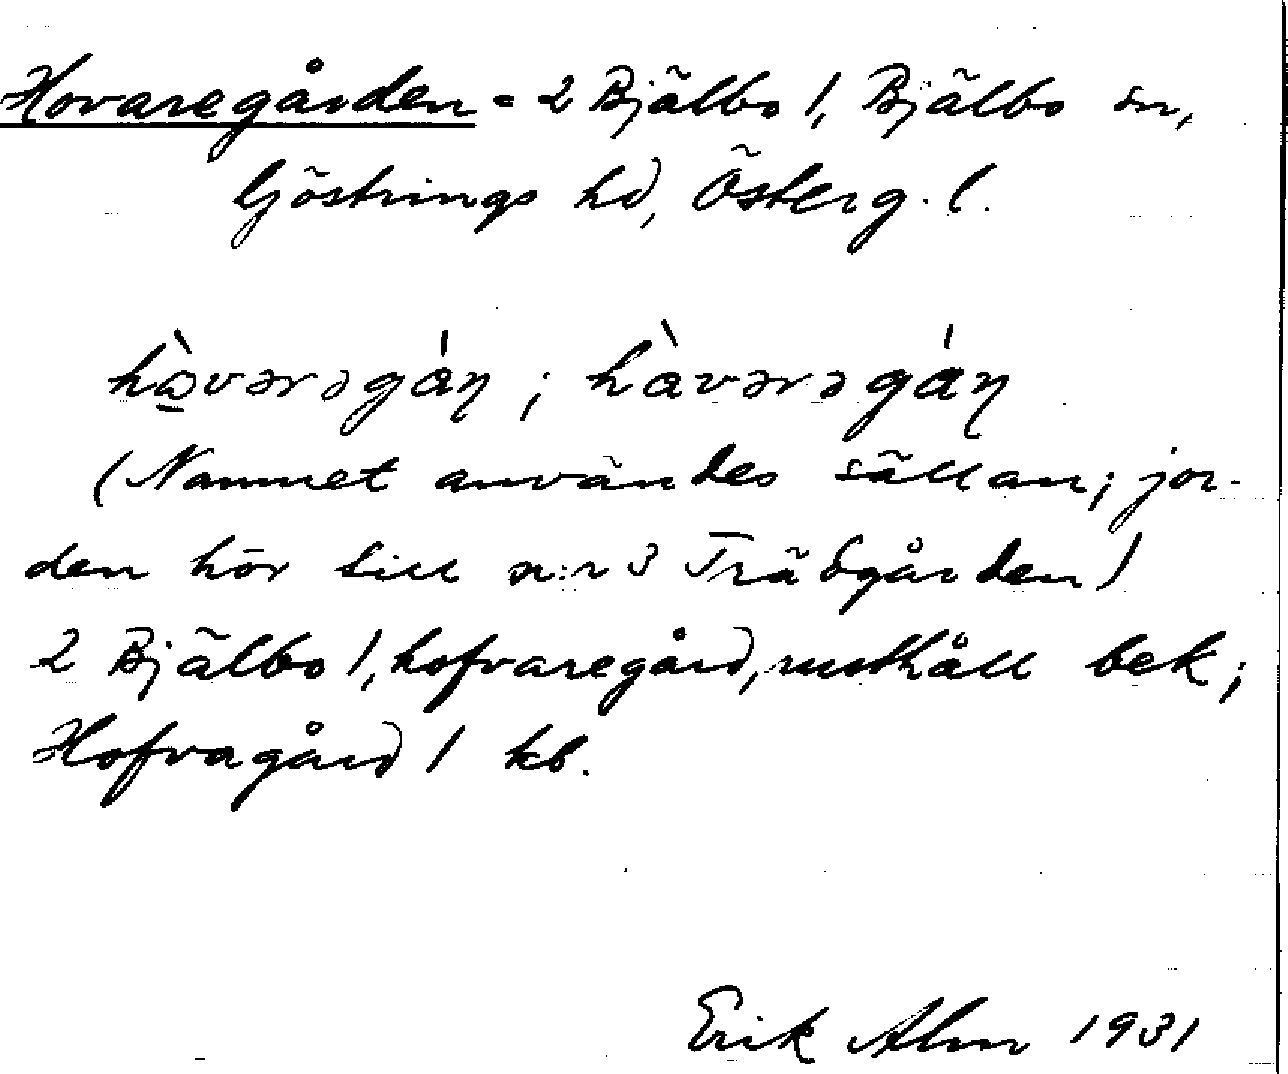 Hovaregården = 2 Bjälbo 1, Bjälbo sn,
Göstrings hd, Österg. l.
hàvərəgán ; hàvərəgán
(Namnet användes sällan; jor-
den hör till n:r 3 Trädgården)
2 Bjälbo 1, hofvaregård, rusthåll bek;
Hofvagård 1 kb.
Erik Alm 1931